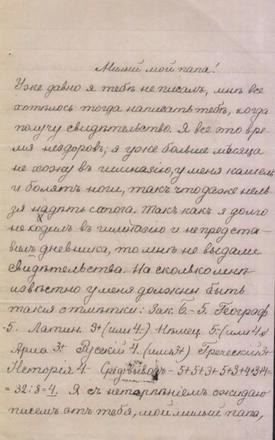 Милый мой папа!
Уже давно я тебѣ не писалъ, мнѣ все
хотѣлось тогда написать тебѣ, когда
получу свидѣтельство. Я все это вре-
мя нездоровъ; я уже больше мѣсяца
не хожу въ гимназію, у меня кашель
и болятъ ноги, такъ что даже нель-
зя надѣть сапога. Такъ какъ я долго
не ходилъ въ гимназію и не предста-
вилъ дневника, то мнѣ не выдали
свидѣтельства. На сколько мнѣ
извѣстно у меня должны быть
такія отмѣтки: Зак. Б.-5. Географ
-5. Латин. 3+ (или 4-) Нѣмец. 5-(или 4)
Ариѳ 3+ Русскій 4. (или 3+) Греческій 3+
Исторія 4- Средн выводъ - 5+5+3+5+3+4+3+4=
= 32:8=4. Я съ нетерпѣніемъ ожидаю
писемъ отъ тебя, мой милый папа,